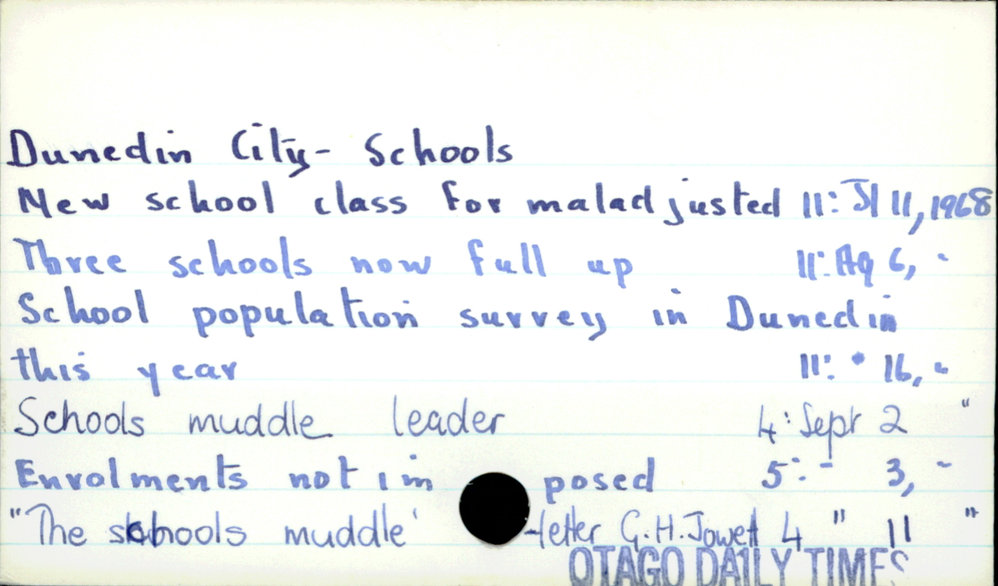 Dunedin City- Schools
New school class for maladjusted 11: Jl 11, 1968
Three schools now full up 11: Ag 6, "
School population survey in Dunedin
this year 11: " 16, "
Schools muddle leader 4: Sept 2 "
Enrolments not imposed 5: - 3, "
"The schools muddle' -letter G.H. Jowett 4 " 11 "
OTAGO DAILY TIMES